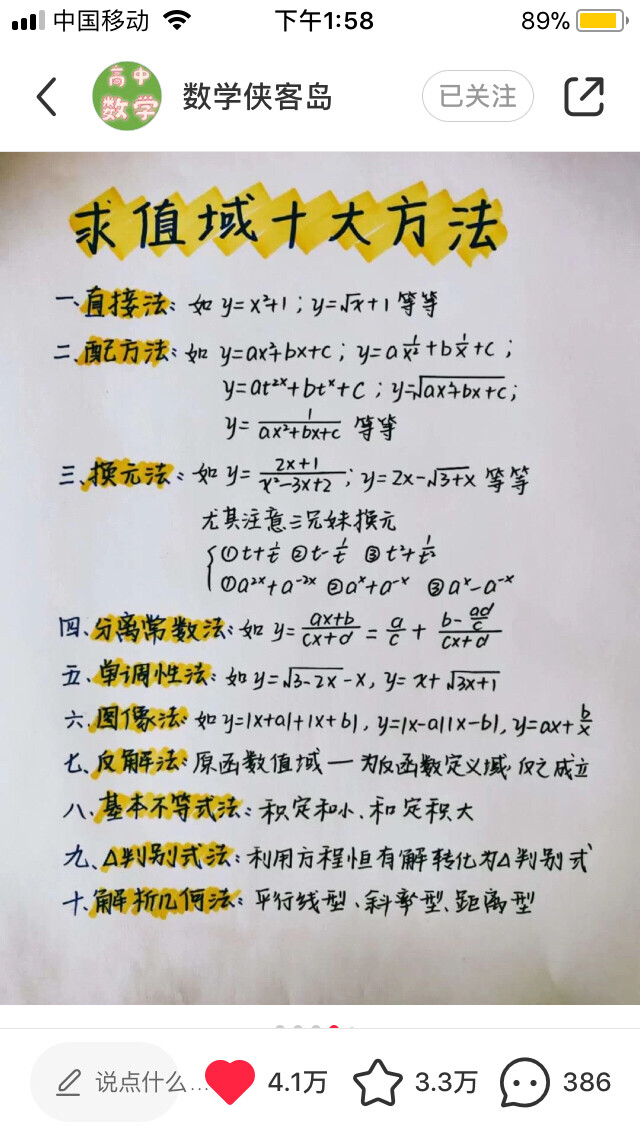 中国移动 下午1:58 89%
高中
数学
数学侠客岛 已关注
求值域十大方法
一、直接法：如 y=x²+1；y=√x+1 等等
二、配方法：如 y=ax²+bx+c；y=a1/x²+b1/x+c；
y=at²ˣ+btˣ+c；y=√(ax²+bx+c)；
y=1/(ax²+bx+c) 等等
三、换元法：如 y=(2x+1)/(x²-3x+2)；y=2x-√(3+x) 等等
尤其注意三兄妹换元
①t+1/t ②t-1/t ③t²+1/t²
①a²ˣ+a⁻²ˣ ②aˣ+a⁻ˣ ③aˣ-a⁻ˣ
四、分离常数法：如 y=(ax+b)/(cx+d)=a/c+(b-ad/c)/(cx+d)
五、单调性法：如 y=√(3-2x)-x，y=x+√(3x+1)
六、图像法：如 y=|x+a|+|x+b|，y=|x-a||x-b|，y=ax+b/x
七、反解法：原函数值域—为反函数定义域·反之成立
八、基本不等式法：积定和小、和定积大
九、Δ判别式法：利用方程恒有解转化为Δ判别式
十、解析几何法：平行线型、斜率型、距离型
说点什么... 4.1万 3.3万 386